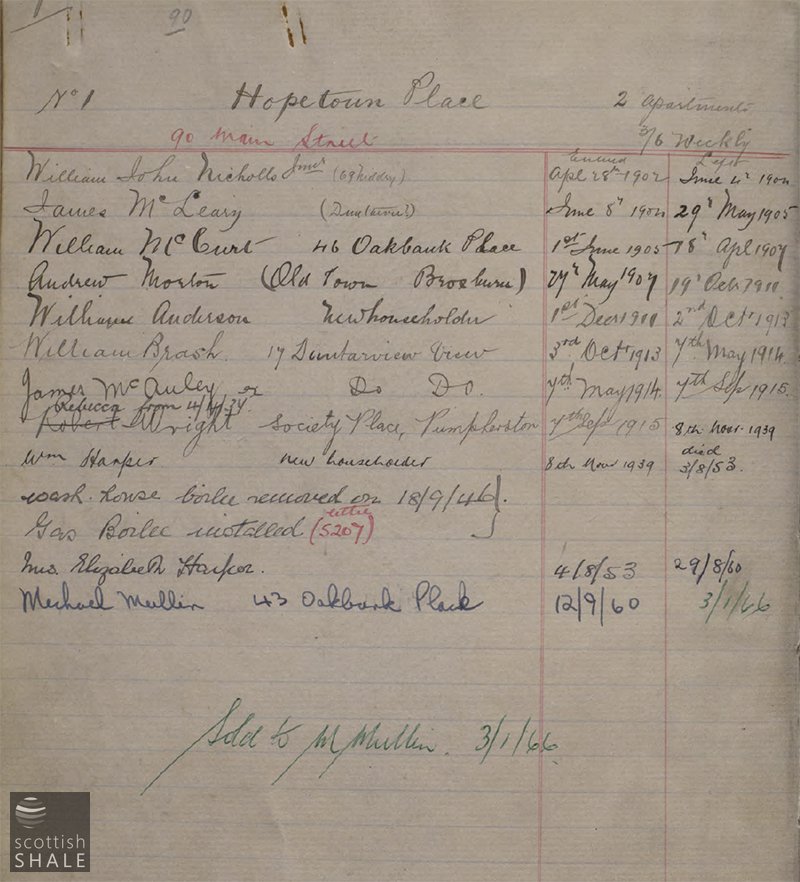 90
No 1 Hopetoun Place 2 apartments
90 Main Street 3/6 Weekly
Entered Left
William John Nicholls Junr (69 Niddry) Apl 28th 1902 June 4th 1904
James McLeary June 8th 1904 29th May 1905
William McCurt 46 Oakbank Place 1st June 1905 18th Apl 1907
Andrew Morton (Old Town Broxburn) 27th May 1907 19th Octr 1910
William Anderson New householder 1st Decr 1910 2nd Octr 1913
William Brash. 17 Duntarview View 3rd Octr 1913 7th May 1914.
James McAuley Do Do. 7th May 1914. 7th Sep 1915.
Rebecca from 4/4/34.
Robert Wright Society Place, Pumpherston 7th Sep 1915 8th Novr 1939
Wm Harper. new householder 8th Novr 1939 died 3/8/53.
wash-house boiler removed on 18/9/46.
Gas Boiler installed (letter 5207)
Mrs. Elizabeth Harper. 4/8/53 29/8/60
Michael Mullin 43 Oakbank Place 12/9/60 3/1/66
Sold to M Mullin. 3/1/66.
scottish
SHALE